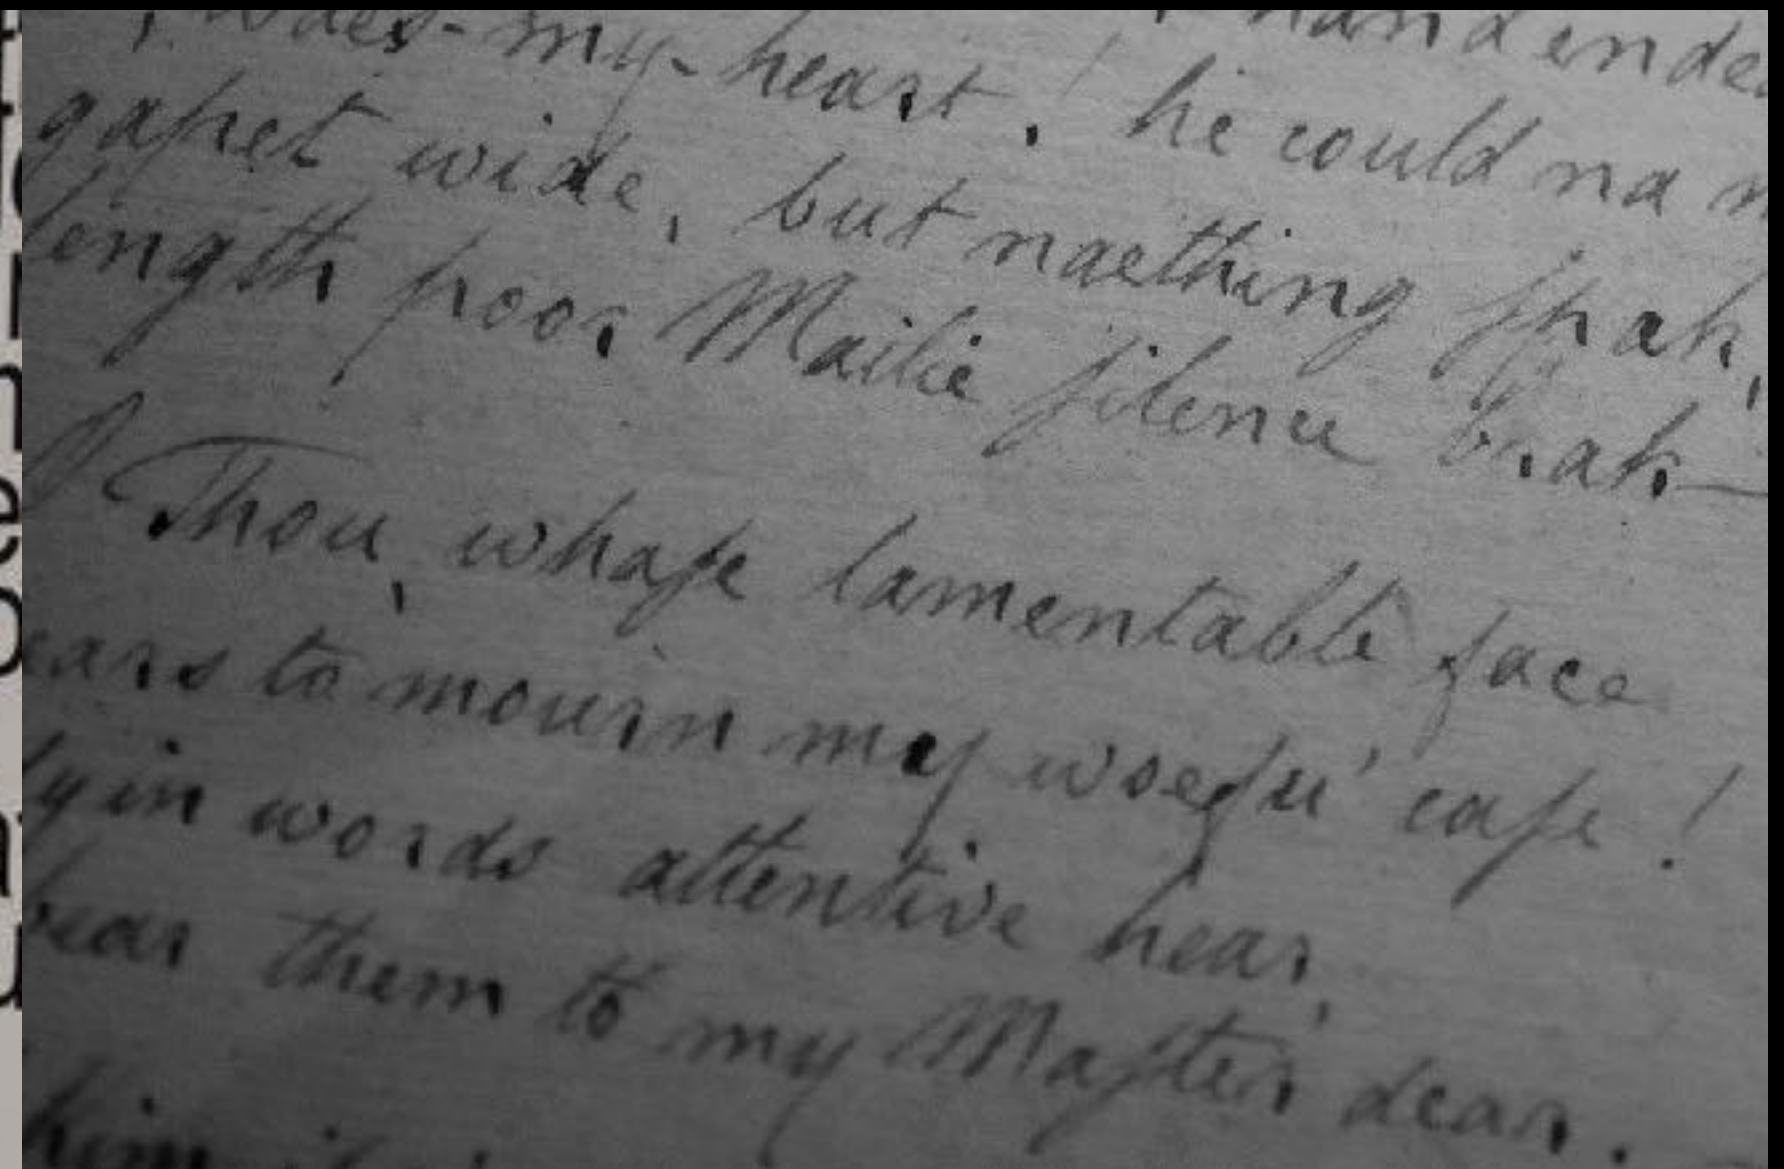 hand ende
waes-my-heart! he could na
gapet wide, but naething ſpak,
length poor Mailie ſilence brak—
O Thou, whaſe lamentable face
ears to mourn my woefu' caſe!
yin words attentive hear,
bear them to my Maſter dear.
him